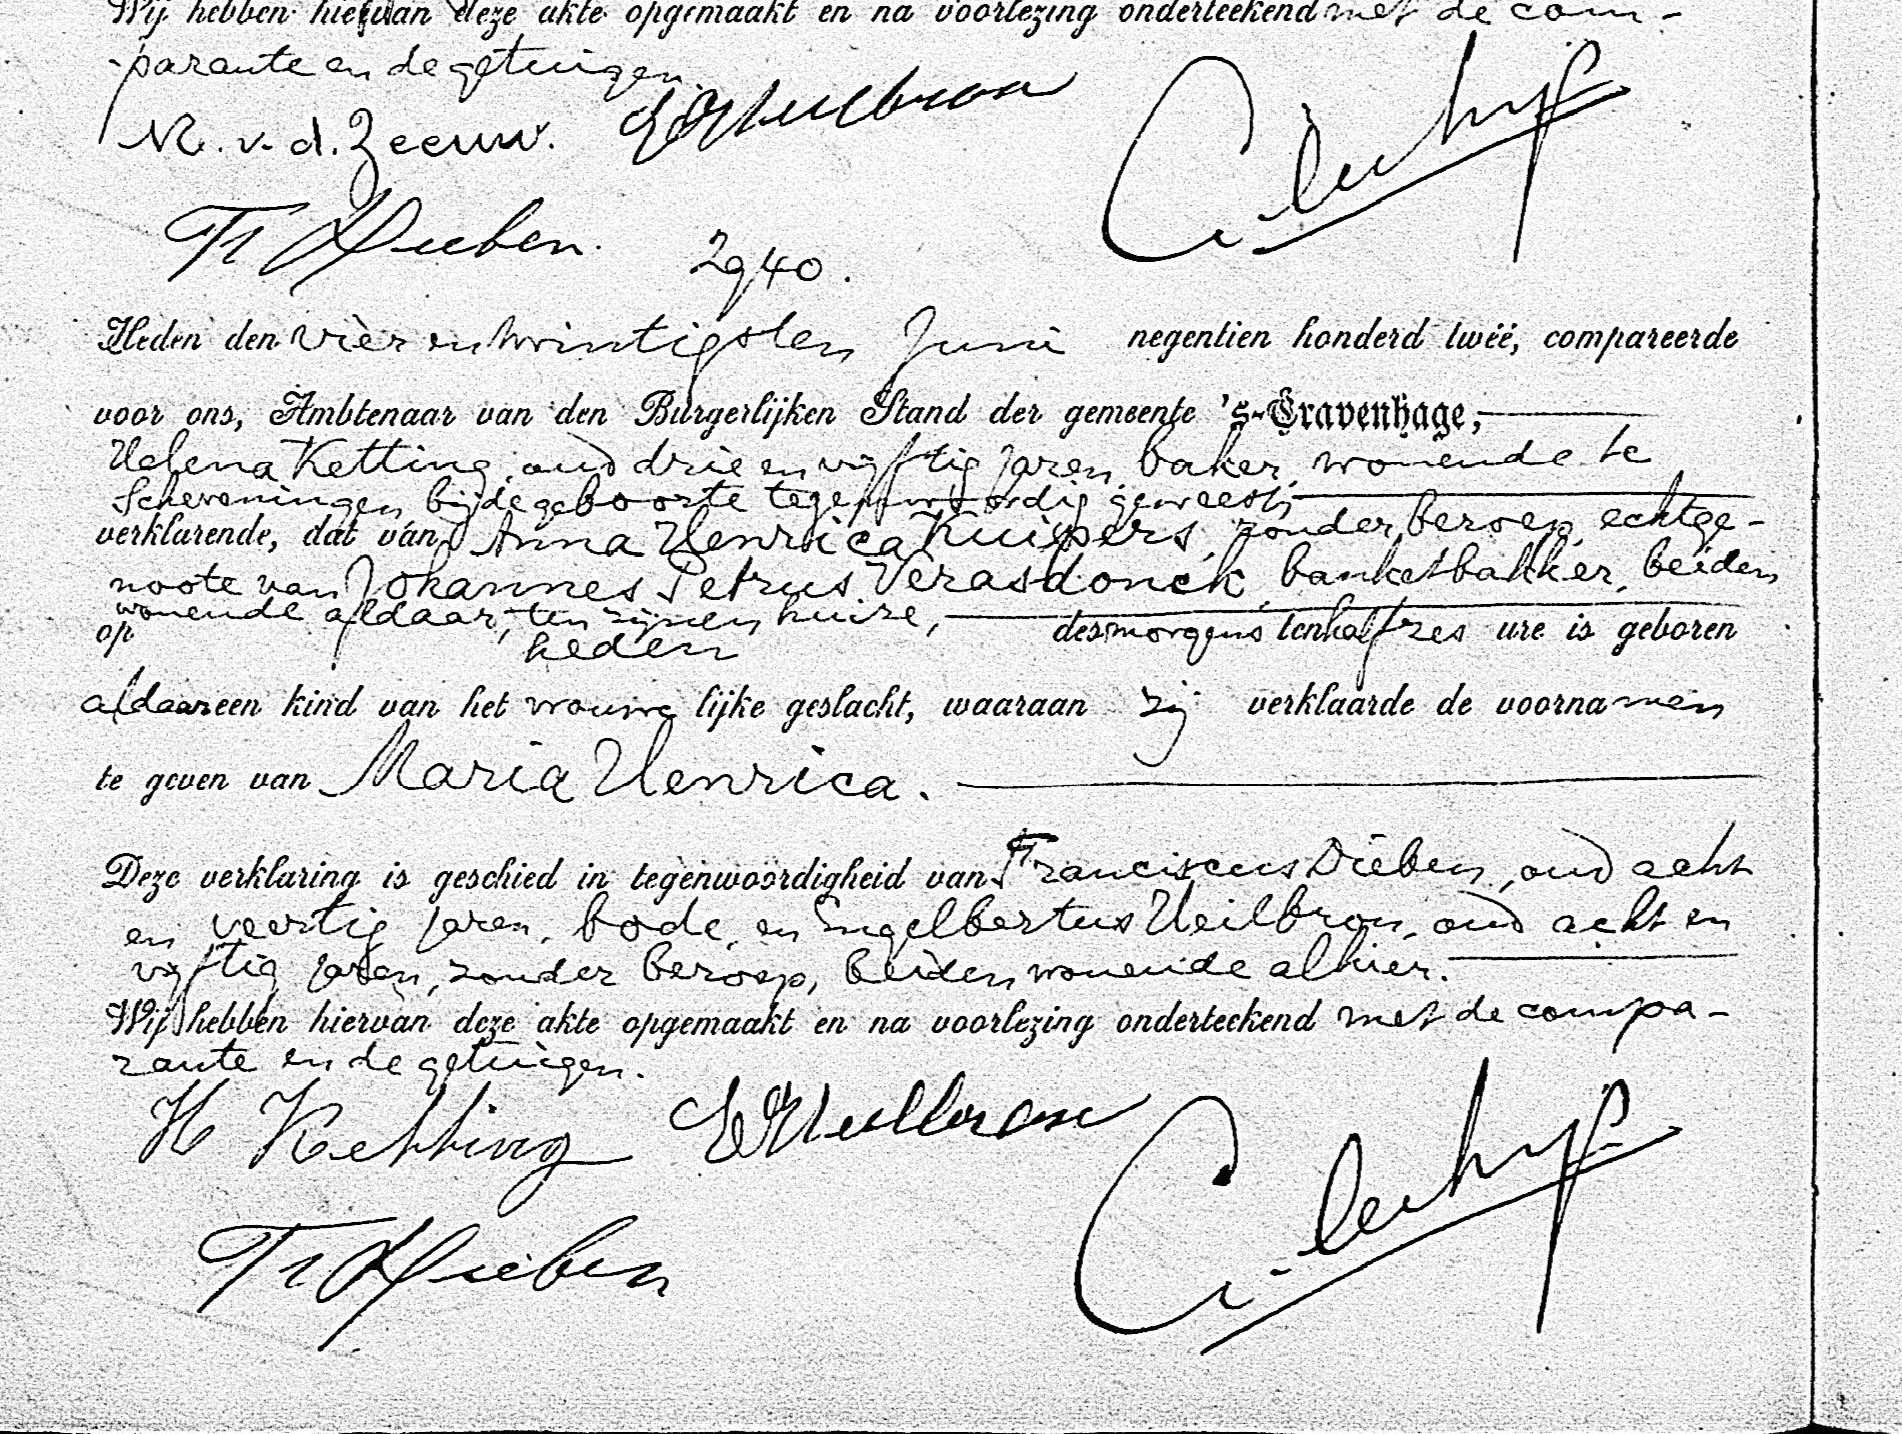 Wij hebben hiervan deze akte opgemaakt en na voorlezing onderteekend met de com-
parante en de getuigen.
M. v. d. Zeeuw. EHeilbron
Fr Dieben.
2940.
Heden den vier en twintigsten Juni negentien honderd twéé, compareerde
voor ons, Ambtenaar van den Burgerlijken Stand der gemeente 's-Gravenhage,
Helena Ketting, oud drie en vijftig jaren, baker, wonende te
Scheveningen, bij de geboorte tegenwoordig geweest,
verklarende, dat van Anna Henrica Kuijpers, zonder beroep, echtge-
noote van Johannes Petrus Verasdonck, banketbakker, beiden
wonende aldaar, ten zijnen huize,
op heden des morgens ten half zes ure is geboren
aldaar een kind van het vrouwelijke geslacht, waaraan zij verklaarde de voornamen
te geven van Maria Henrica.
Deze verklaring is geschied in tegenwoordigheid van Franciscus Dieben, oud acht
en veertig jaren, bode, en Engelbertus Heilbron, oud acht en
vijftig jaren, zonder beroep, beiden wonende alhier.
Wij hebben hiervan deze akte opgemaakt en na voorlezing onderteekend met de compa-
rante en de getuigen.
H Ketting EHeilbron
Fr Dieben